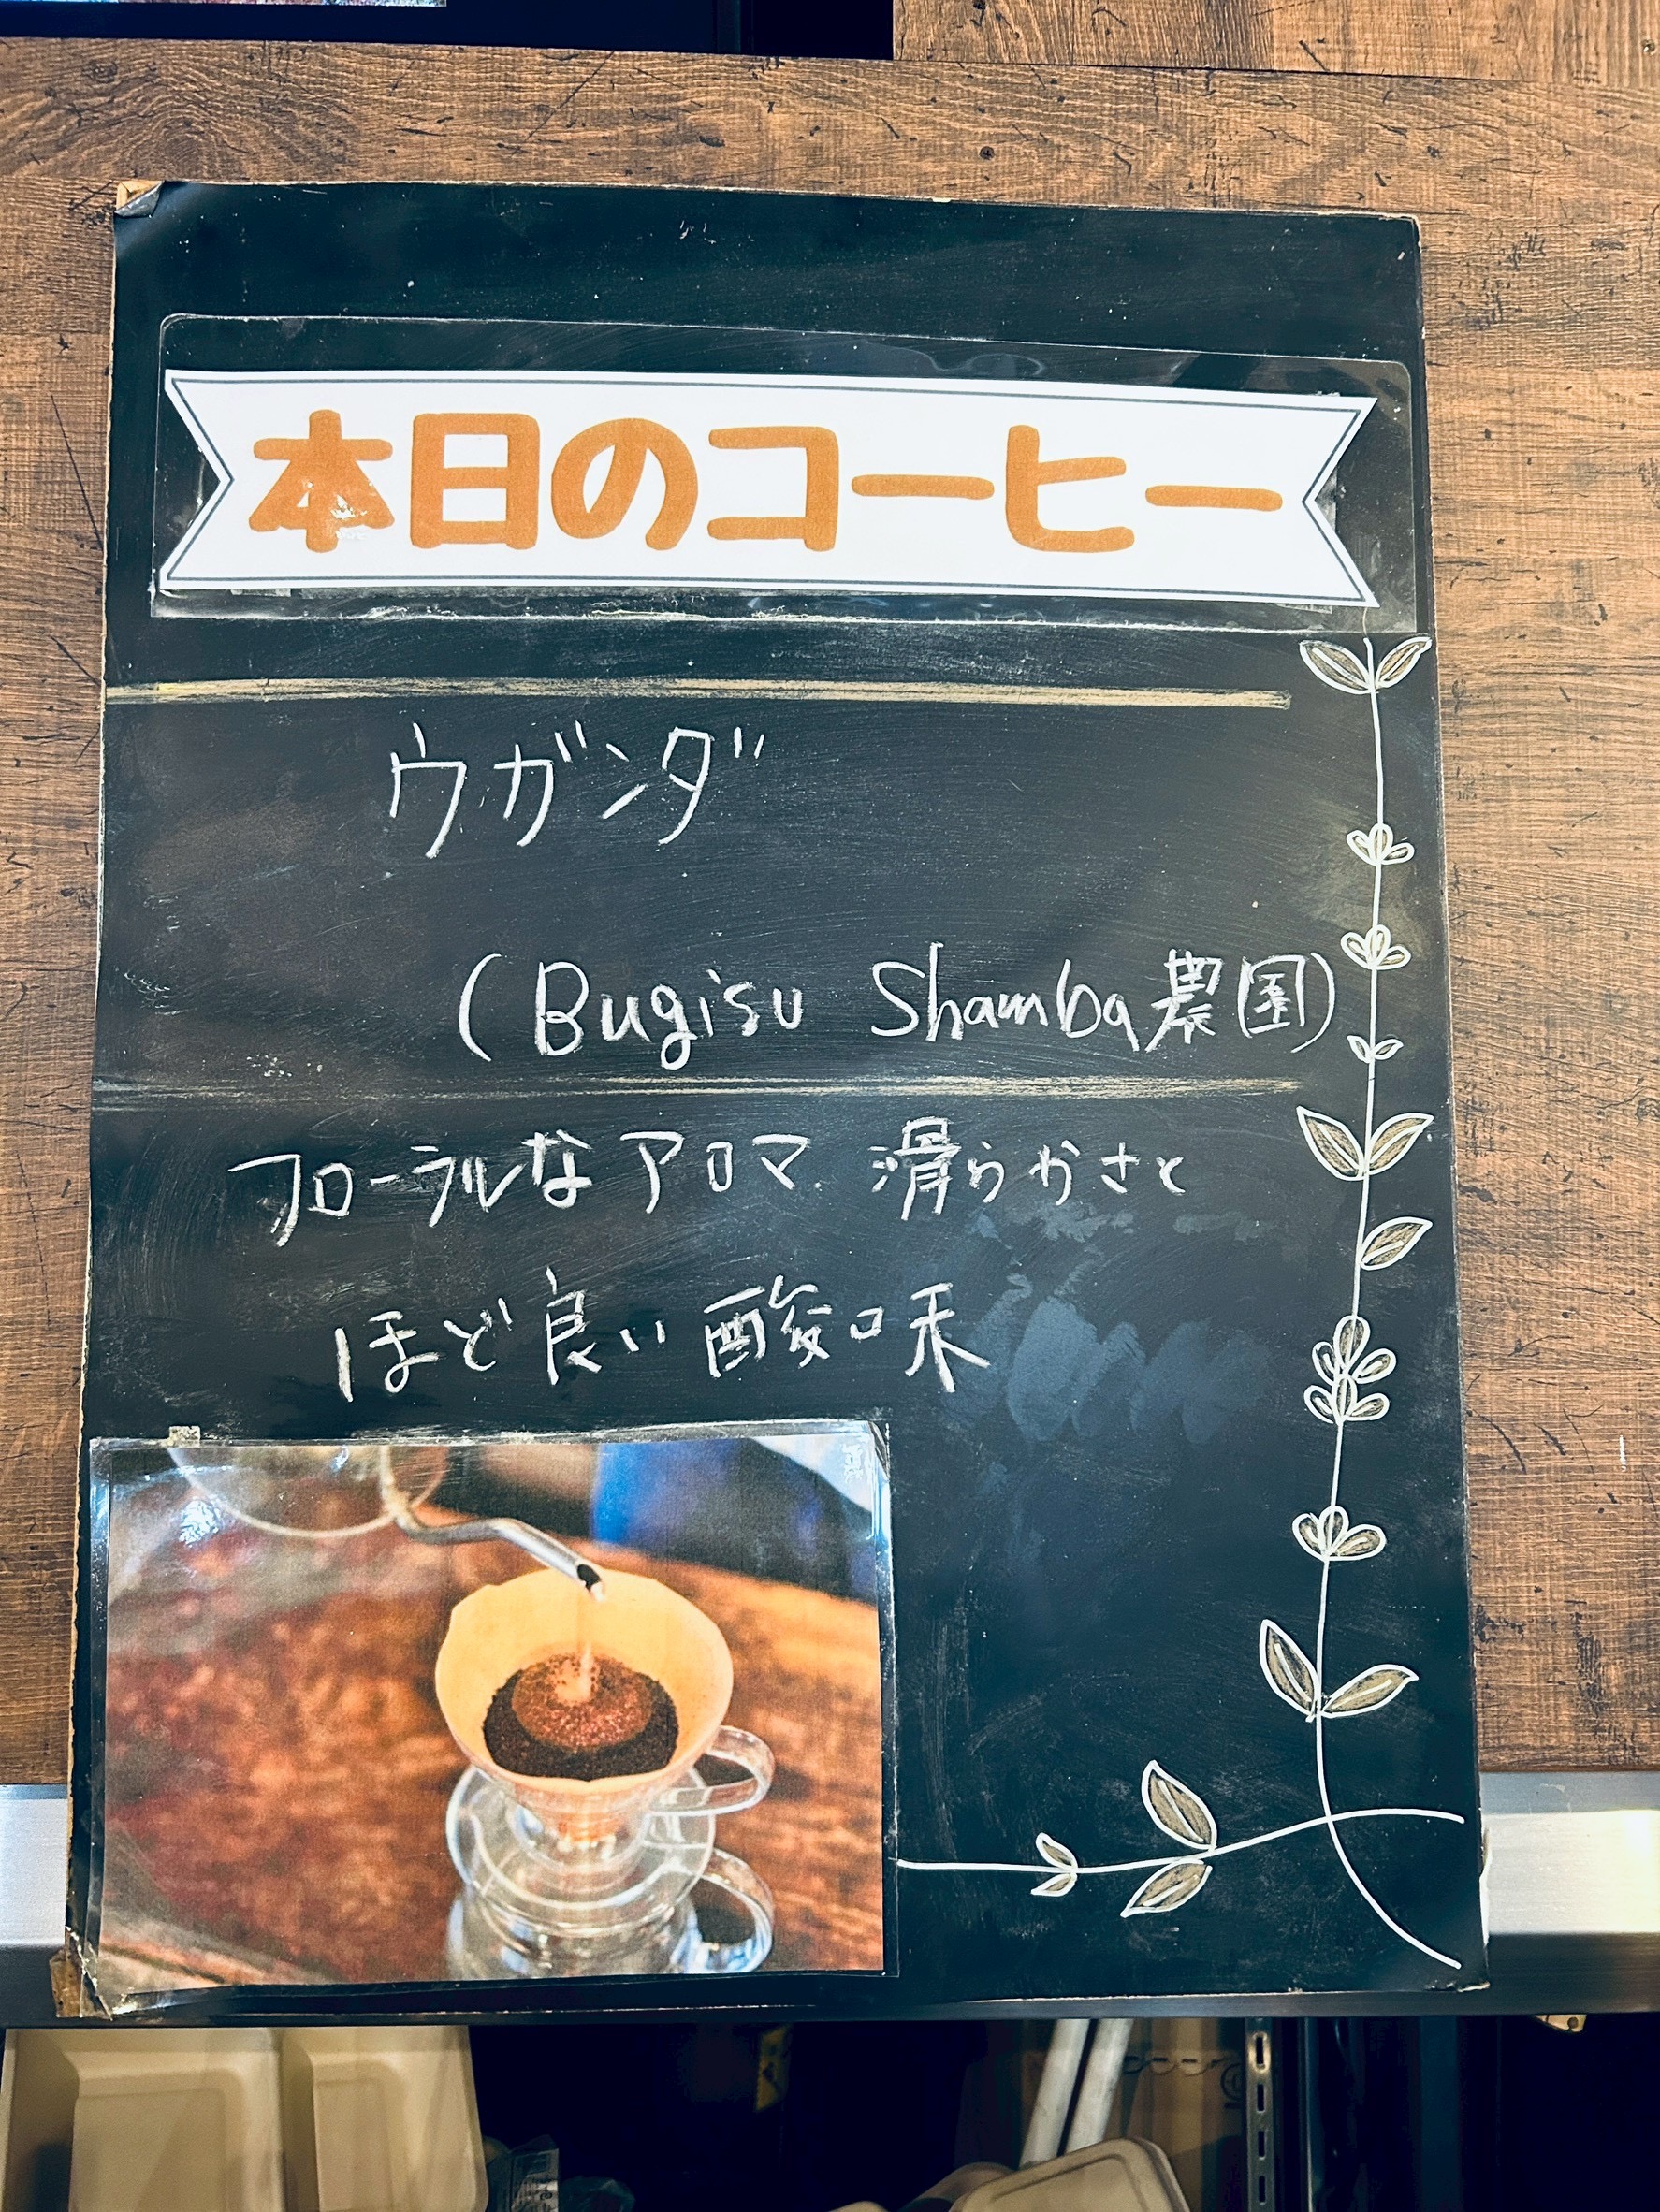 本日のコーヒー
ウガンダ
(Bugisu Shamba農園)
フローラルなアロマ 滑らかさと
ほど良い酸味